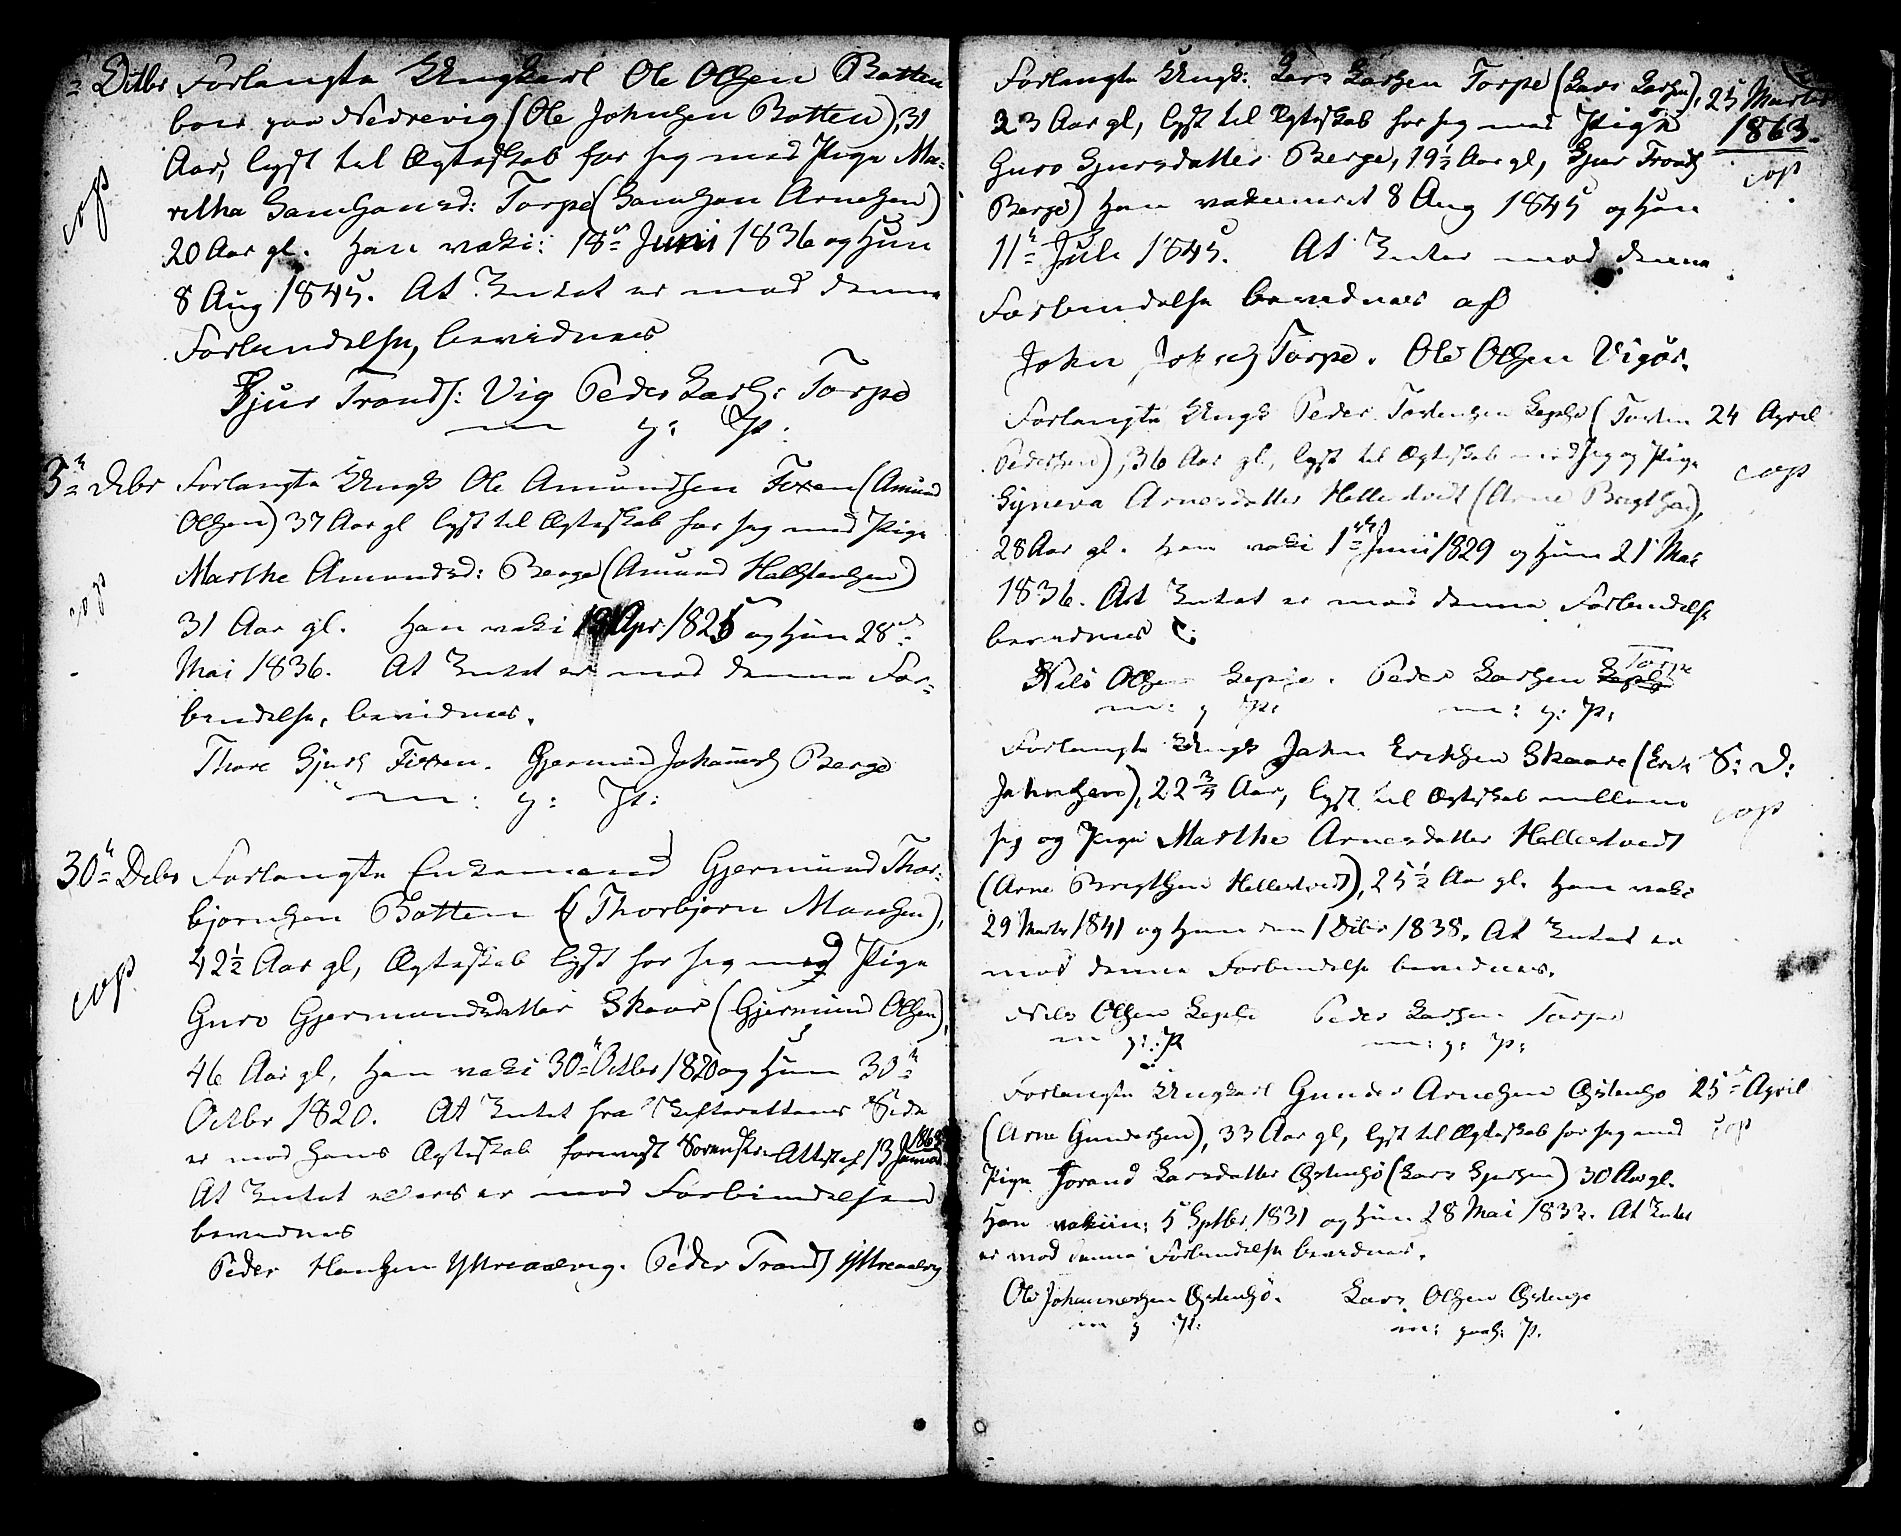 Ditbr Forlangte Ungkarl Ole Olsen Botten
boer paa Nedrevig (Ole Johnsen Botten), 31
Aar, lyst til Ægteskab for sig med Pige Ma-
ritha Samsonsd: Torpe (Samson Arnesen)
cop
20 Aar gl. Han vaki: 18de Juni 1836 og Hun
8 Aug 1845. At Intet er mod denne
Forbindelse, bevidnes
Sjur Tronds: Vig Peder Lars: Torpe
m: p: P:
3de Debr Forlangte Ungk Ole Amundsen Fixen (Amund
Olsen) 37 Aar gl lyst til Ægteskab for sig med Pige
Marthe Amundsd: Berge (Amund Halstensen)
cop
31 Aar gl. Han vaki Apr 1825 og Hun 28de
Mai 1836. At Intet er mod denne For-
bindelse, bevidnes.
Thore Sjurs Fixen. Gjermund Johannes Berge
m: p: P:
30te Debr Forlangte Enkemand Gjermund Thor-
bjørnsen Botten (Thorbjørn Monsen),
42½ Aar gl, Ægteskab lyst for sig med Pige
cop
Guro Gjermundsdatter Skaar (Gjermund Olsen),
46 Aar gl, Han vaki 30te Octbr 1820 og Hun 30te
Octbr 1820. At Intet fra Skifterettens Side
er mod hans Ægteskab forevist Sorenskr. Attest af 13 Januar 1863
At Intet ellers er mod Forbindelsen
bevidnes
Peder Hansen Ystreaalvig. Peder Tronds Ystreaalvig
Forlangte Ungk: Lars Larsen Torpe (Lars Larsen), 25 Marts
23 Aar gl, lyst til Ægteskab for sig med Pige 1863.
Guro Sjursdatter Berge, 19½ Aar gl, (Sjur Tronds cop
Berge) Han vakcineret 8 Aug 1845 og Hun
11te Juli 1845. At Intet er mod denne
Forbindelse bevidnes af
John Johns Torpe. Ole Olsen Vigør.
Forlangte Ungk Peder Torstensen Lepsø (Torsten 24 April
Pedersen), 36 Aar gl, lyst til Ægteskab med sig og Pige cop
Synneva Arnesdatter Hellestvedt (Arne Brigtsen),
28 Aar gl. Han vaki 1ste Juni 1829 og Hun 21 Mai
1836. At Intet er mod denne Forbindelse
bevidnes
Nils Olsen Lepsø. Peder Larsen Torpe
m: p: P: m: p: P:
Forlangte Ungk John Eriksen Skaare (Erik S: D:
Johnsen), 22¾ Aar, lyst til Ægteskab mellem cop
sig og Pige Marthe Arnesdatter Hellestvedt
(Arne Brigtsen Hellestvedt), 25½ Aar gl. Han vaki
29 Marts 1841 og Hun den 1 Debr 1838. At Intet er
mod denne Forbindelse bevidnes.
Nils Olsen Lepsø Peder Larsen Torpe
m p: P m: p: P:
Forlangte Ungkarl Gunder Arnesen Østensø 25de April
(Arne Gundersen), 33 Aar gl, lyst til Ægteskab for sig med cop
Pige Jorand Larsdatter Østensø (Lars Sjursen) 30 Aar gl.
Han vakcin: 5 Septbr 1831 og Hun 28 Mai 1833. At Intet
er mod denne Forbindelse bevidnes.
Ole Johannessen Østensø. Lars Olsen Østensø
m p P: m: paah: P.